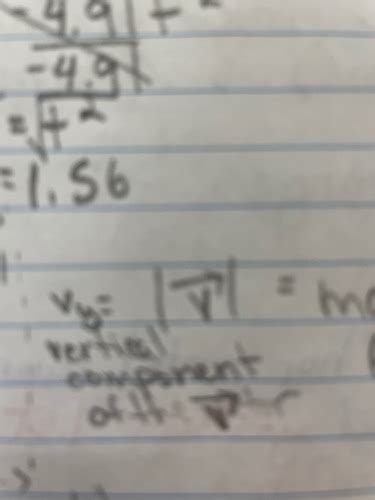 -4.9 t²
-4.9
= √t²
= 1.56
v_y = |v⃗| =
vertical
component
of the v⃗